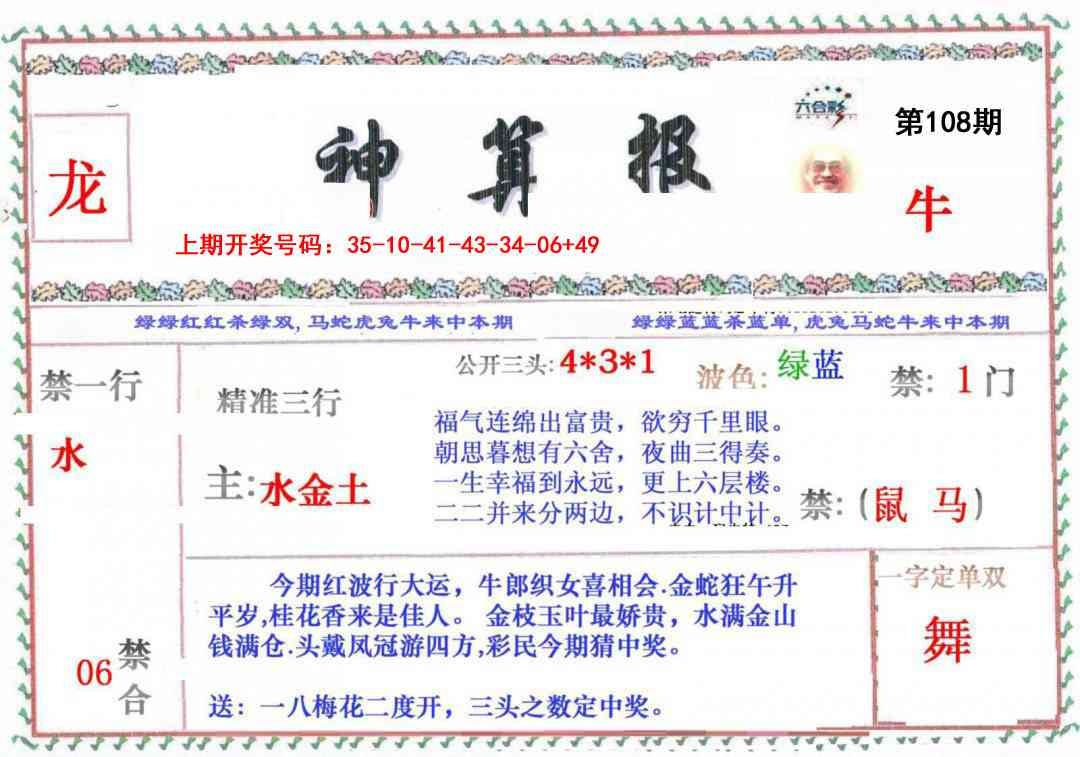 六合彩
第108期
龙
神算报
牛
上期开奖号码：35-10-41-43-34-06+49
绿绿红红杀绿双,马蛇虎兔牛来中本期
绿绿蓝蓝杀蓝单,虎兔马蛇牛来中本期
禁一行
水
精准三行
主:水金土
公开三头:4*3*1
波色:绿蓝
禁: 1门
福气连绵出富贵，欲穷千里眼。
朝思暮想有六舍，夜曲三得奏。
一生幸福到永远，更上六层楼。
二二并来分两边，不识计中计。
禁:(鼠 马)
今期红波行大运，牛郎织女喜相会.金蛇狂午升
平岁,桂花香来是佳人。金枝玉叶最娇贵，水满金山
钱满仓.头戴凤冠游四方,彩民今期猜中奖。
送：一八梅花二度开，三头之数定中奖。
一字定单双
舞
06
禁合